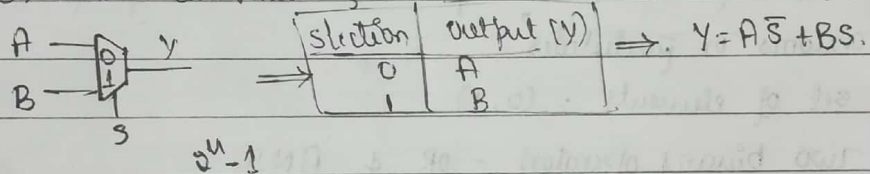 A
B
0
1
y
S
Slction output (y)
0 A
1 B
⇒ ⇒. Y = A S̅ + BS.